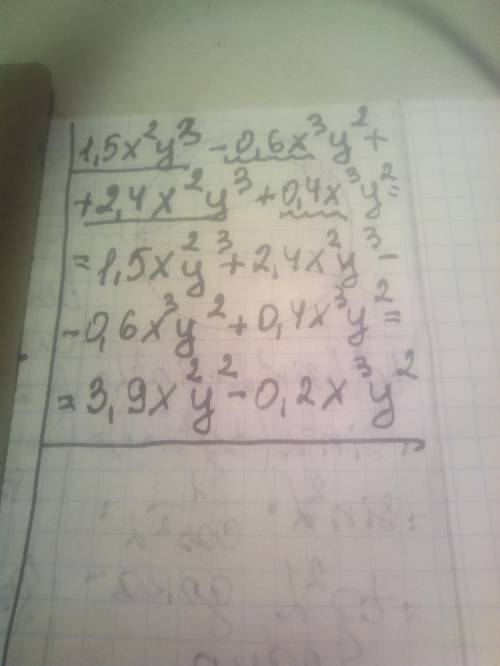 1,5x²y³ - 0,6x³y² +
+ 2,4x²y³ + 0,4x³y² =
= 1,5x²y³ + 2,4x²y³ -
- 0,6x³y² + 0,4x³y² =
= 3,9x²y² - 0,2x³y²